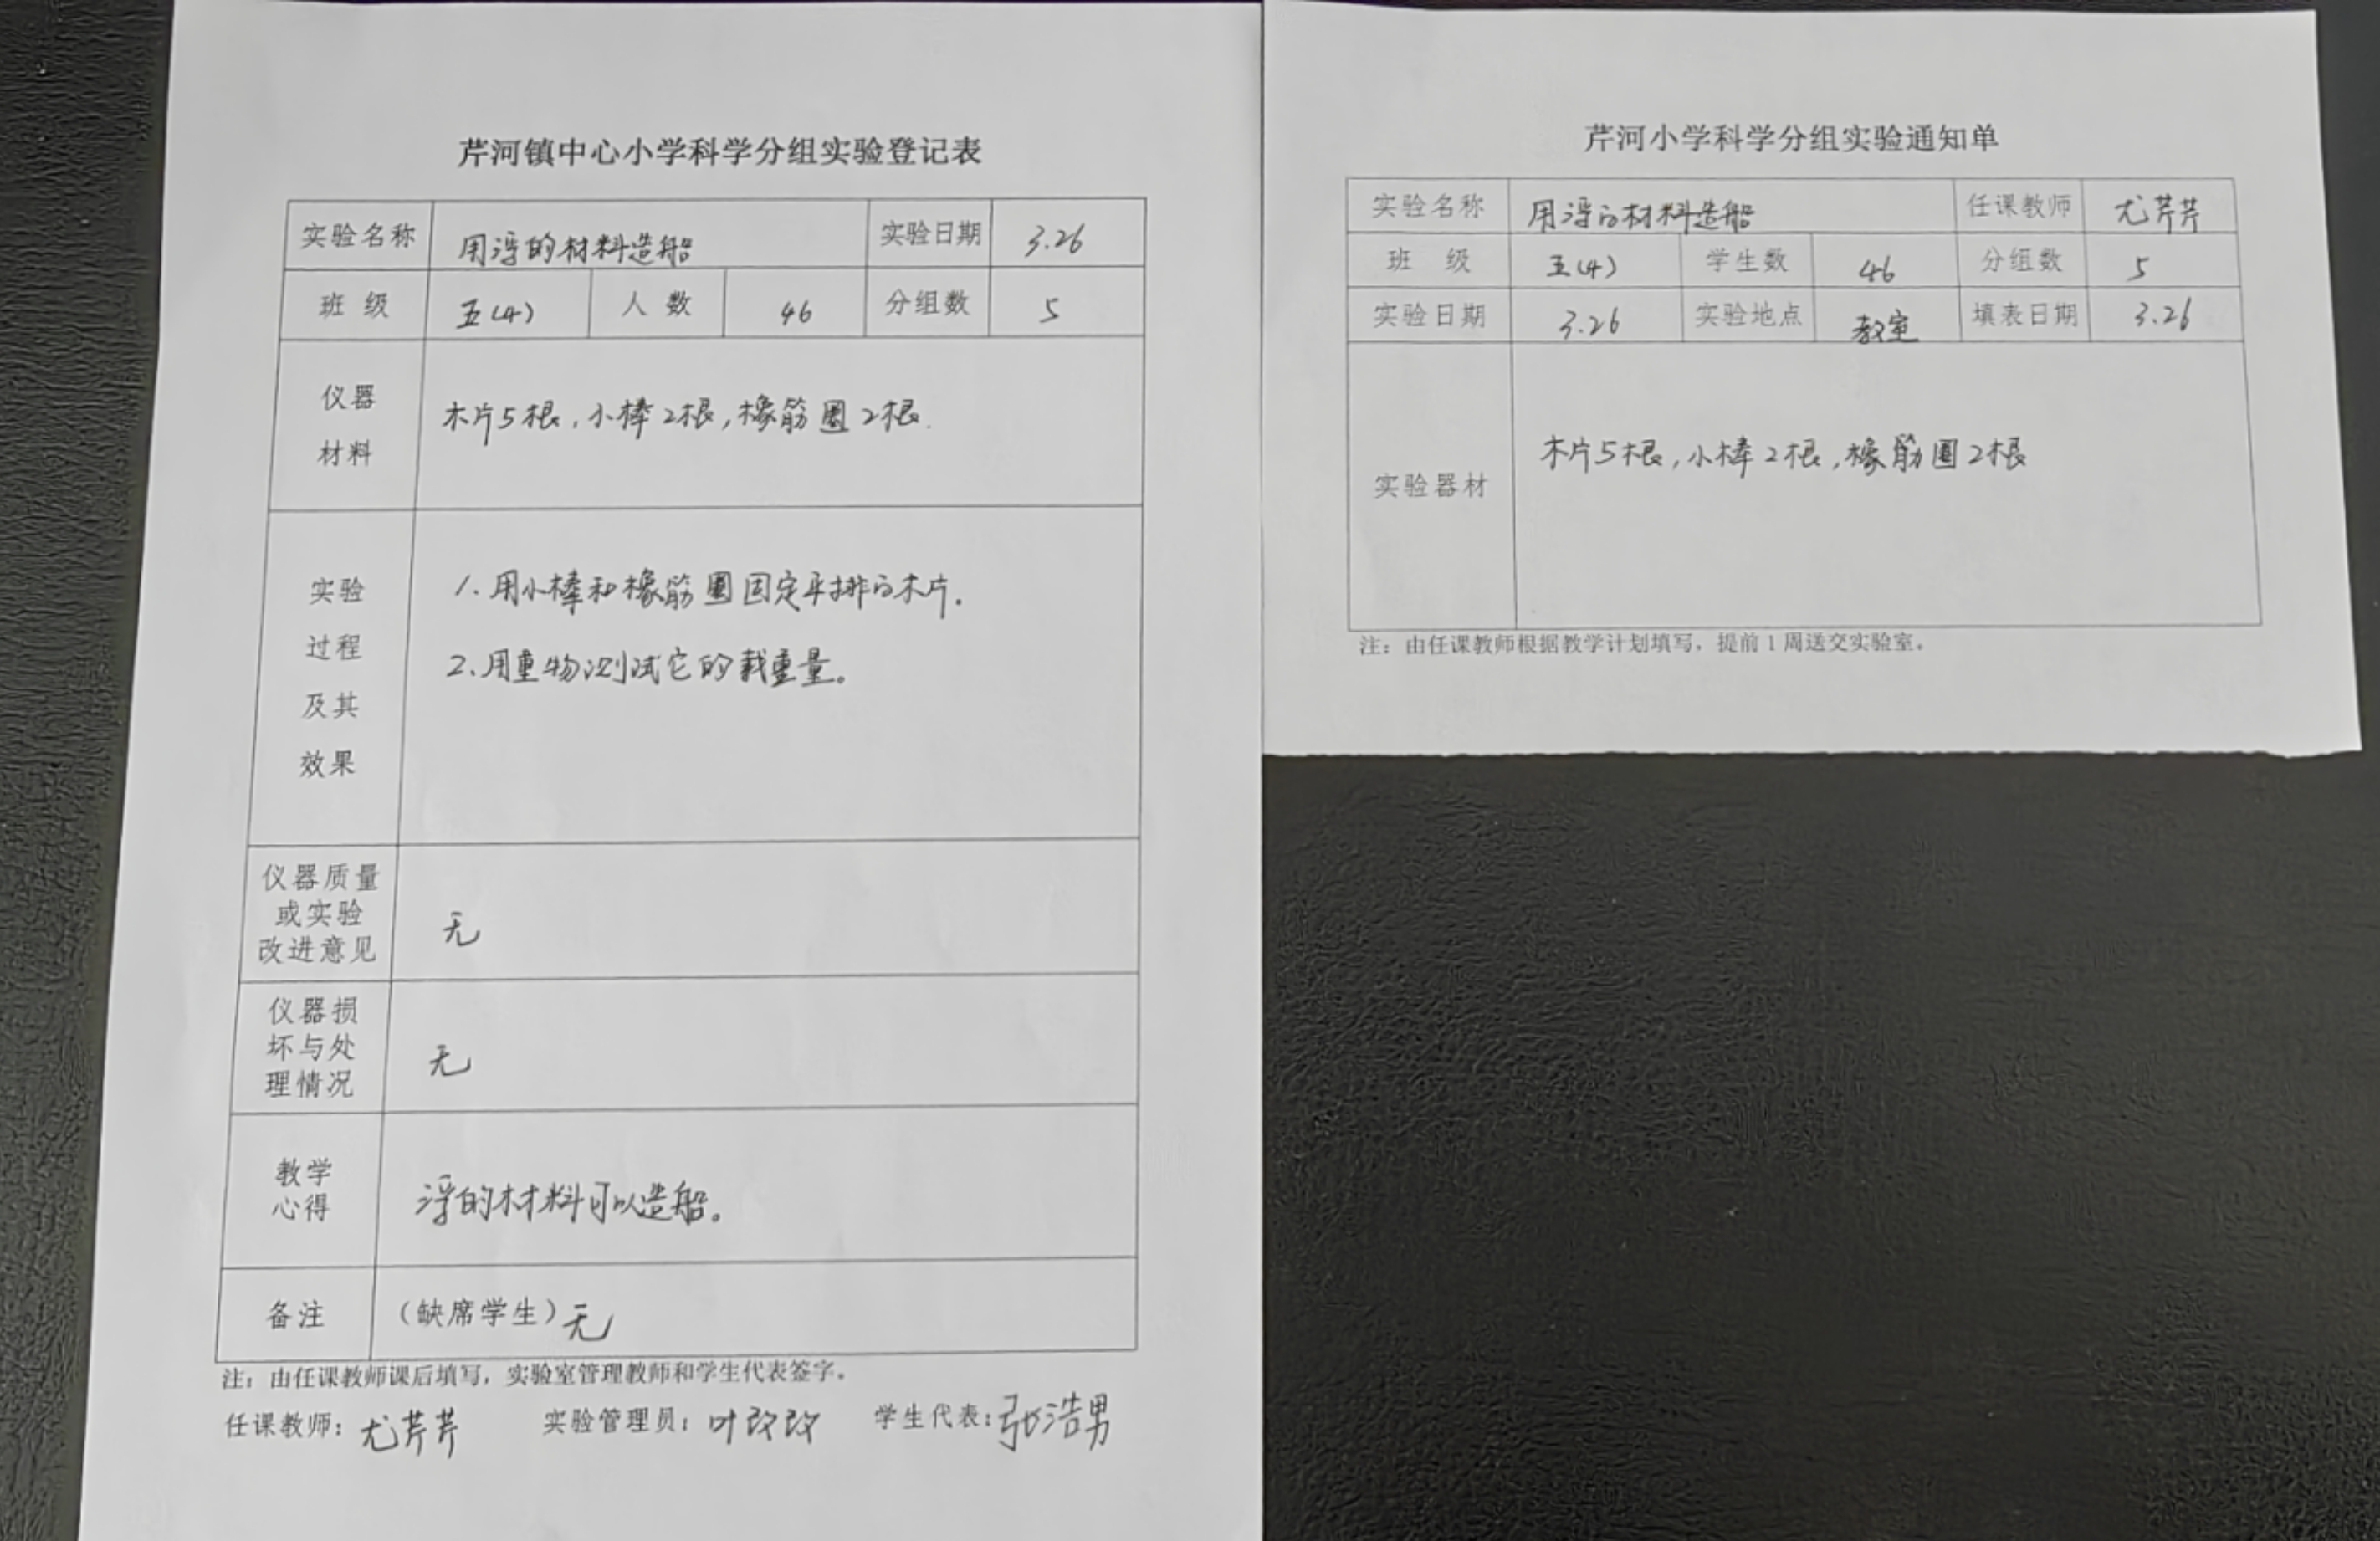 芹河镇中心小学科学分组实验登记表
实验名称 用浮的材料造船 实验日期 3.26
班级 五(4) 人数 46 分组数 5
仪器
材料
木片5根,小棒2根,橡筋圈2根.
实验
过程
及其
效果
1.用小棒和橡筋圈固定平排的木片.
2.用重物测试它的载重量。
仪器质量
或实验
改进意见
无
仪器损
坏与处
理情况
无
教学
心得
浮的材料可以造船。
备注 (缺席学生)无
注:由任课教师课后填写,实验室管理教师和学生代表签字。
任课教师:尤芹芹 实验管理员:叶改改 学生代表:张浩男
芹河小学科学分组实验通知单
实验名称 用浮的材料造船 任课教师 尤芹芹
班 级 五(4) 学生数 46 分组数 5
实验日期 3.26 实验地点 教室 填表日期 3.26
实验器材 木片5根,小棒2根,橡筋圈2根
注:由任课教师根据教学计划填写,提前1周送交实验室。